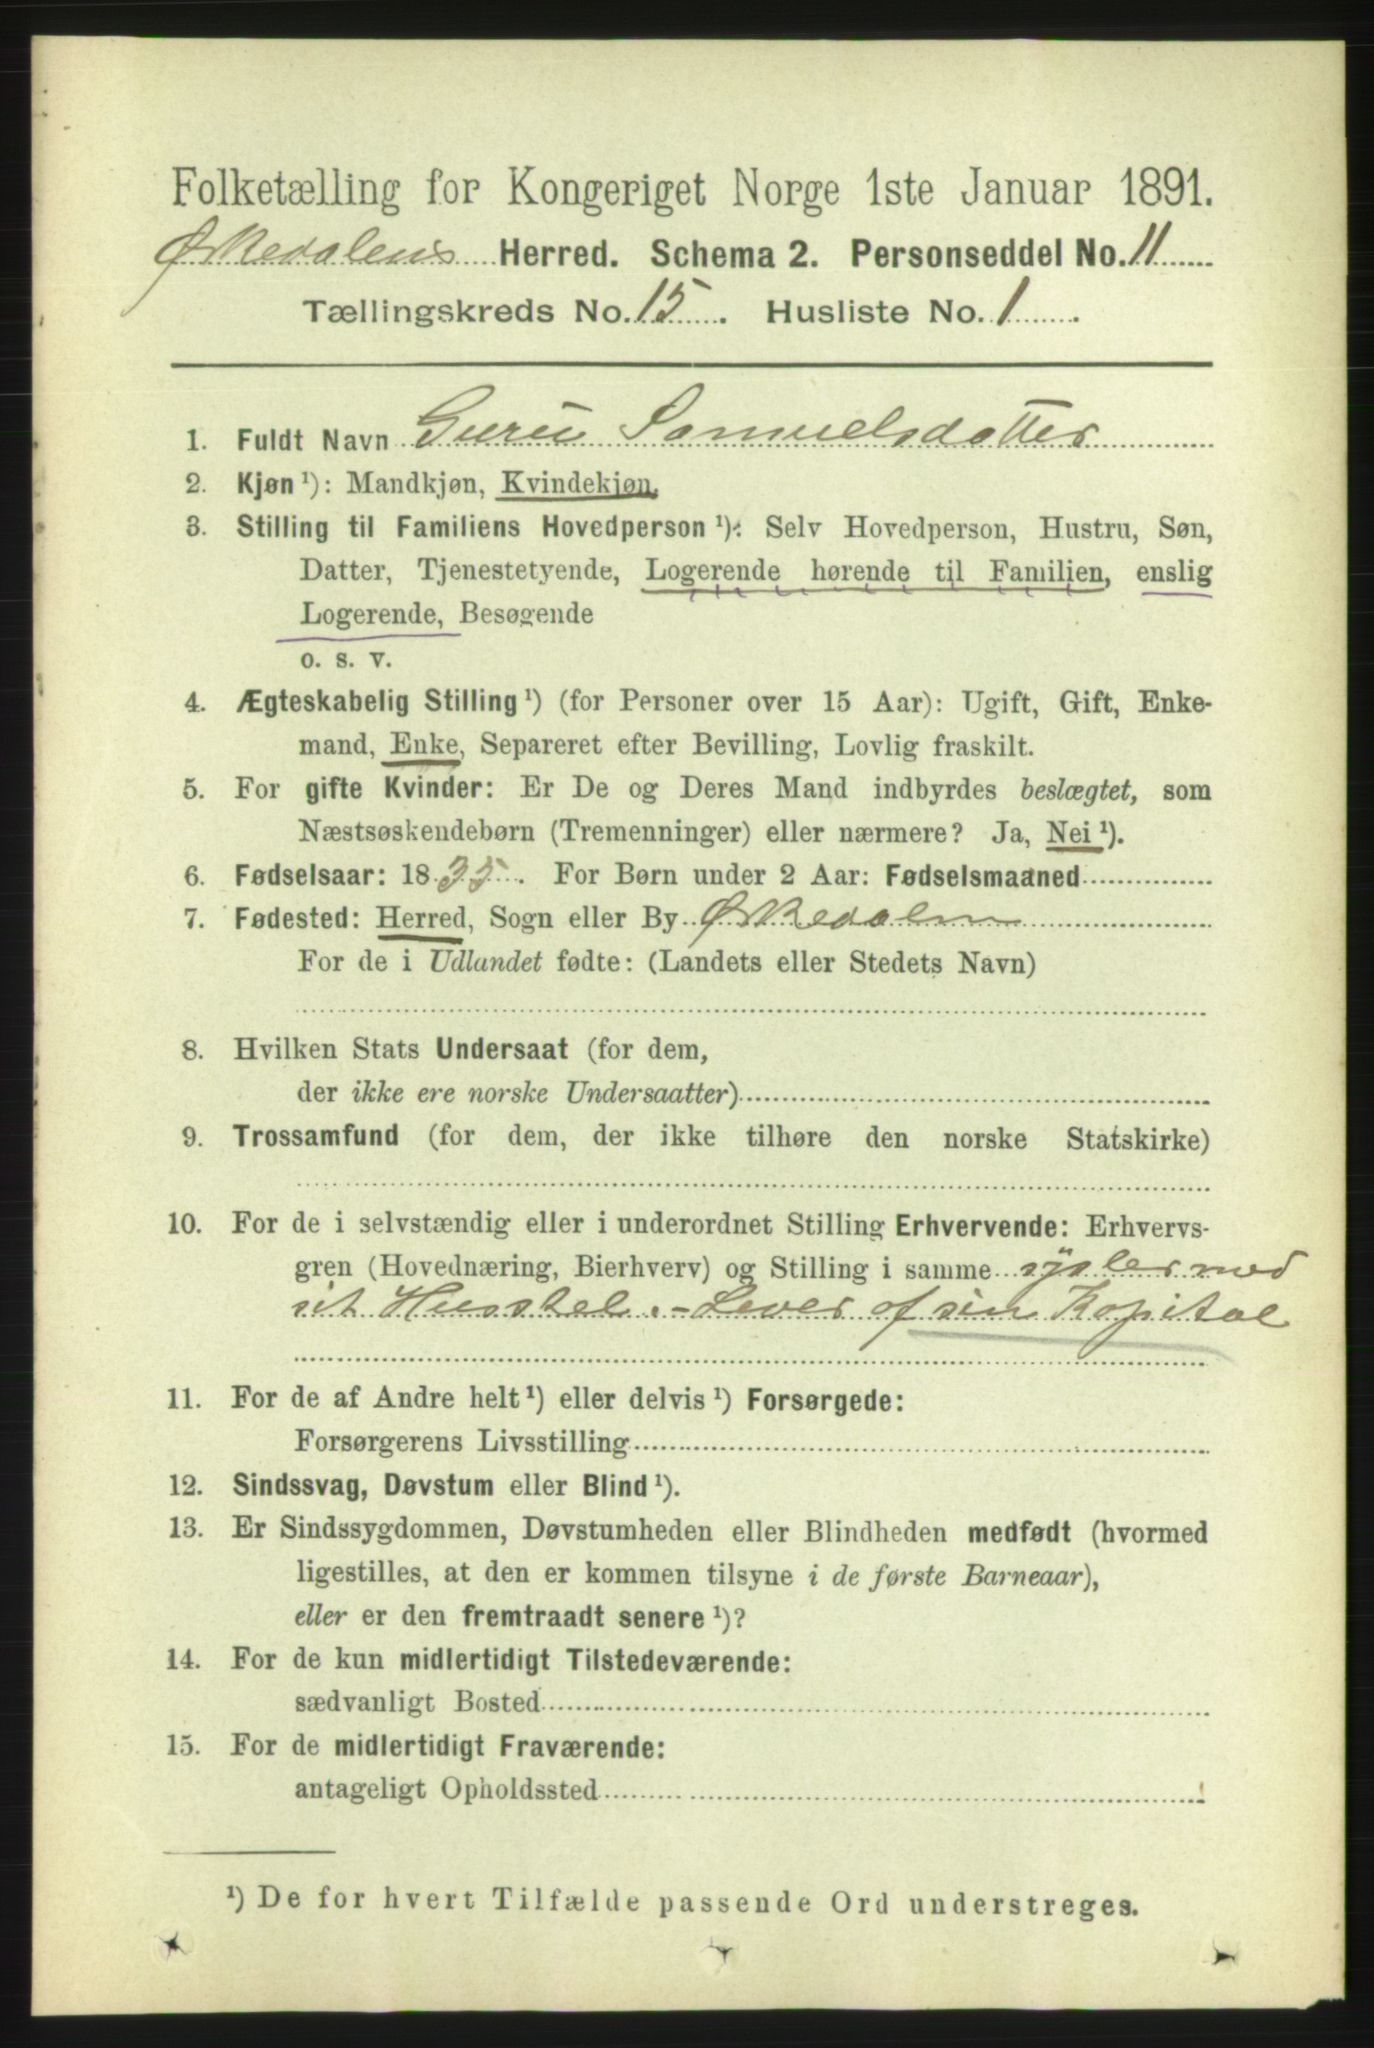 Folketælling for Kongeriget Norge 1ste Januar 1891.
Ørkedalens Herred. Schema 2. Personseddel No. 11
Tællingskreds No. 15. Husliste No. 1.
1. Fuldt Navn Guru Samuelsdatter
2. Kjøn ¹): Mandkjøn, Kvindekjøn.
3. Stilling til Familiens Hovedperson ¹): Selv Hovedperson, Hustru, Søn,
Datter, Tjenestetyende, Logerende hørende til Familien, enslig
Logerende, Besøgende
o. s. v.
4. Ægteskabelig Stilling ¹) (for Personer over 15 Aar): Ugift, Gift, Enke-
mand, Enke, Separeret efter Bevilling, Lovlig fraskilt.
5. For gifte Kvinder: Er De og Deres Mand indbyrdes beslægtet, som
Næstsøskendebørn (Tremenninger) eller nærmere? Ja, Nei ¹).
6. Fødselsaar: 1835. For Børn under 2 Aar: Fødselsmaaned
7. Fødested: Herred, Sogn eller By Ørkedalen
For de i Udlandet fødte: (Landets eller Stedets Navn)
8. Hvilken Stats Undersaat (for dem,
der ikke ere norske Undersaatter)
9. Trossamfund (for dem, der ikke tilhøre den norske Statskirke)
10. For de i selvstændig eller i underordnet Stilling Erhvervende: Erhvervs-
gren (Hovednæring, Bierhverv) og Stilling i samme sysler med
sit Husstel. - Lever af sin Kapital
11. For de af Andre helt ¹) eller delvis ¹) Forsørgede:
Forsørgerens Livsstilling
12. Sindssvag, Døvstum eller Blind ¹).
13. Er Sindssygdommen, Døvstumheden eller Blindheden medfødt (hvormed
ligestilles, at den er kommen tilsyne i de første Barneaar),
eller er den fremtraadt senere ¹)?
14. For de kun midlertidigt Tilstedeværende:
sædvanligt Bosted
15. For de midlertidigt Fraværende:
antageligt Opholdssted
¹) De for hvert Tilfælde passende Ord understreges.